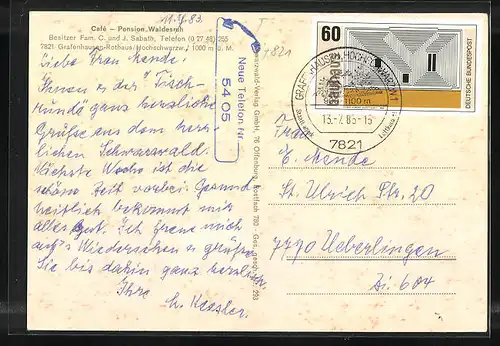 11.7.83
Café – Pension „Waldesruh
Besitzer Fam. C. und J. Sabath, Telefon (0 77 48) 255
7821 Grafenhausen-Rothaus/Hochschwarzw./ 1000 m ü. M.
Liebe Frau Mende!
Ihnen u. der Tisch-
runde ganz herzliche
Grüße aus dem herr-
lichen Schwarzwald.
Nächste Woche ist die
schöne Zeit vorbei. Gesund-
heitlich bekommt mir
alles gut. Ich freue mich
auf's Wiedersehen u. grüße
Sie bis dahin ganz herzlich.
Ihre
Neue Telefon Nr.
5405
Schwarzwald-Verlag GmbH, 76 Offenburg, Postfach 780 - Ges. gesch.
60
DEUTSCHE BUNDESPOST
GRAFENHAUSEN, HOCHSCHWARZW 1
1100 m
13.-7.83-15
Luftkurort
7821
Frau
E. Mende
St. Ulrich Str. 20
7770 Ueberlingen
Zi. 604